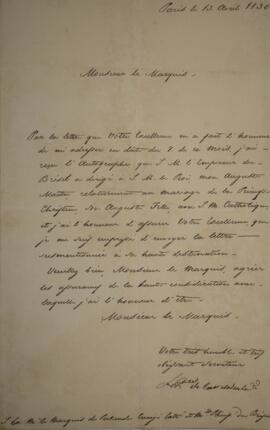 Paris le 13 Avril 1830
Monsieur le Marquis
Par la lettre que Votre Excellence m'a fait l'honneur
de m'adresser en date du 8 de ce mois, j'ai
reçu l'Autographe que S. M. l'Empereur du
Brésil a dirigé à S. M. le Roi, mon Auguste
Maître relativement au mariage de la Princesse
Son Auguste avec S. M. Catholique,
et j'ai l'honneur d'assurer Votre Excellence, que
je me suis empressé d'envoyer la lettre
susmentionnée à sa haute destination.
Veuillez bien, Monsieur le Marquis, agréer
les assurances de la haute considération avec
laquelle j'ai l'honneur d'être
Monsieur le Marquis
Votre très humble et très
Serviteur
S. E. M. le Marquis de